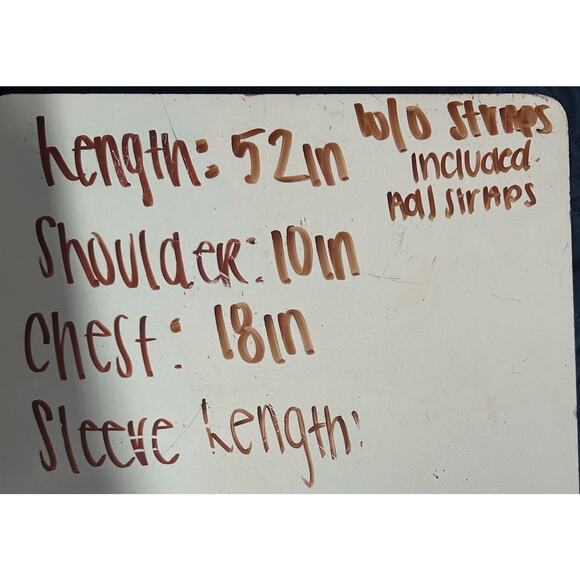 Length: 52in w/o straps
included
Adj straps
Shoulder: 10in
Chest: 18in
Sleeve Length: